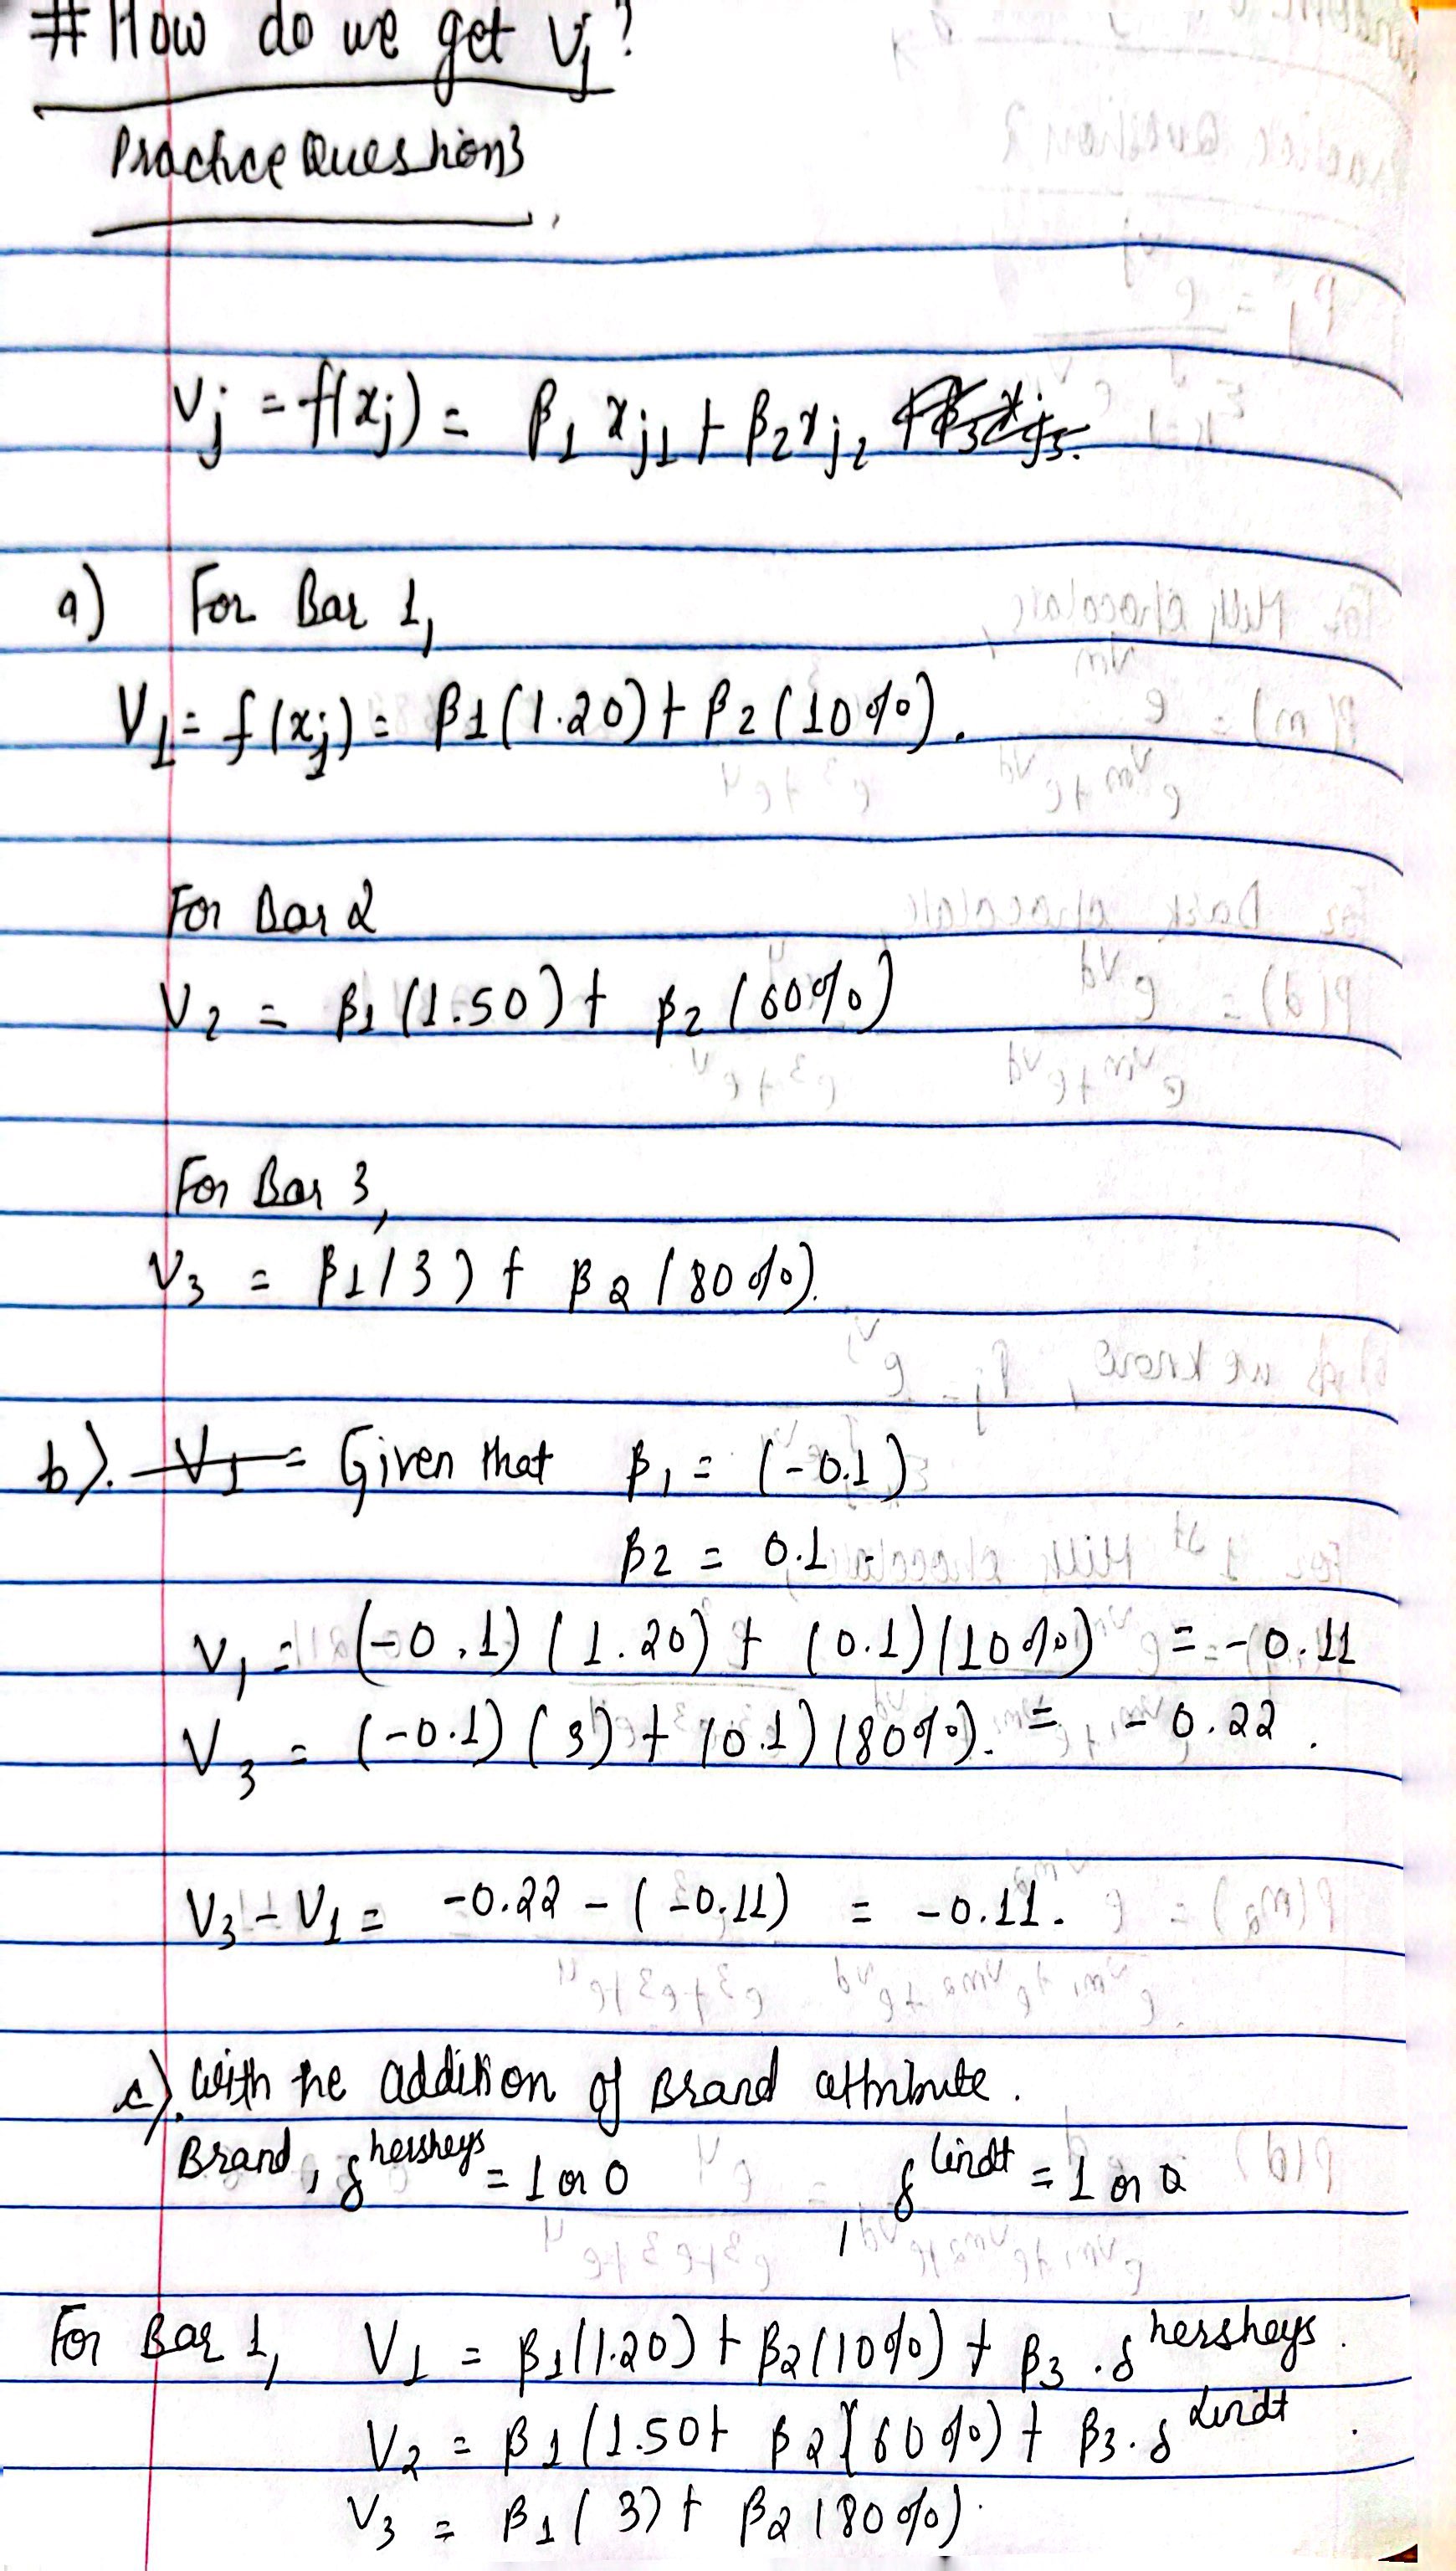 # How do we get Vj?
Practice Questions
Vj = f(xj) = β1 xj1 + β2 xj2
a) For Bar 1,
V1 = f(xj) = β1(1.20) + β2(10%).
For Bar 2
V2 = β1(1.50) + β2(60%)
For Bar 3,
V3 = β1(3) + β2(80%).
b). V1 = Given that β1 = (-0.1)
β2 = 0.1
V1 = (-0.1)(1.20) + (0.1)(10%) = -0.11
V3 = (-0.1)(3) + (0.1)(80%). = -0.22.
V3 - V1 = -0.22 - (-0.11) = -0.11.
c). With he addition of Brand attribute.
Brand, δ^hersheys = 1 or 0, δ^lindt = 1 or 0
For Bar 1, V1 = β1(1.20) + β2(10%) + β3.δ^hersheys.
V2 = β1(1.50 + β2(60%) + β3.δ^Lindt.
V3 = β1(3) + β2(80%).